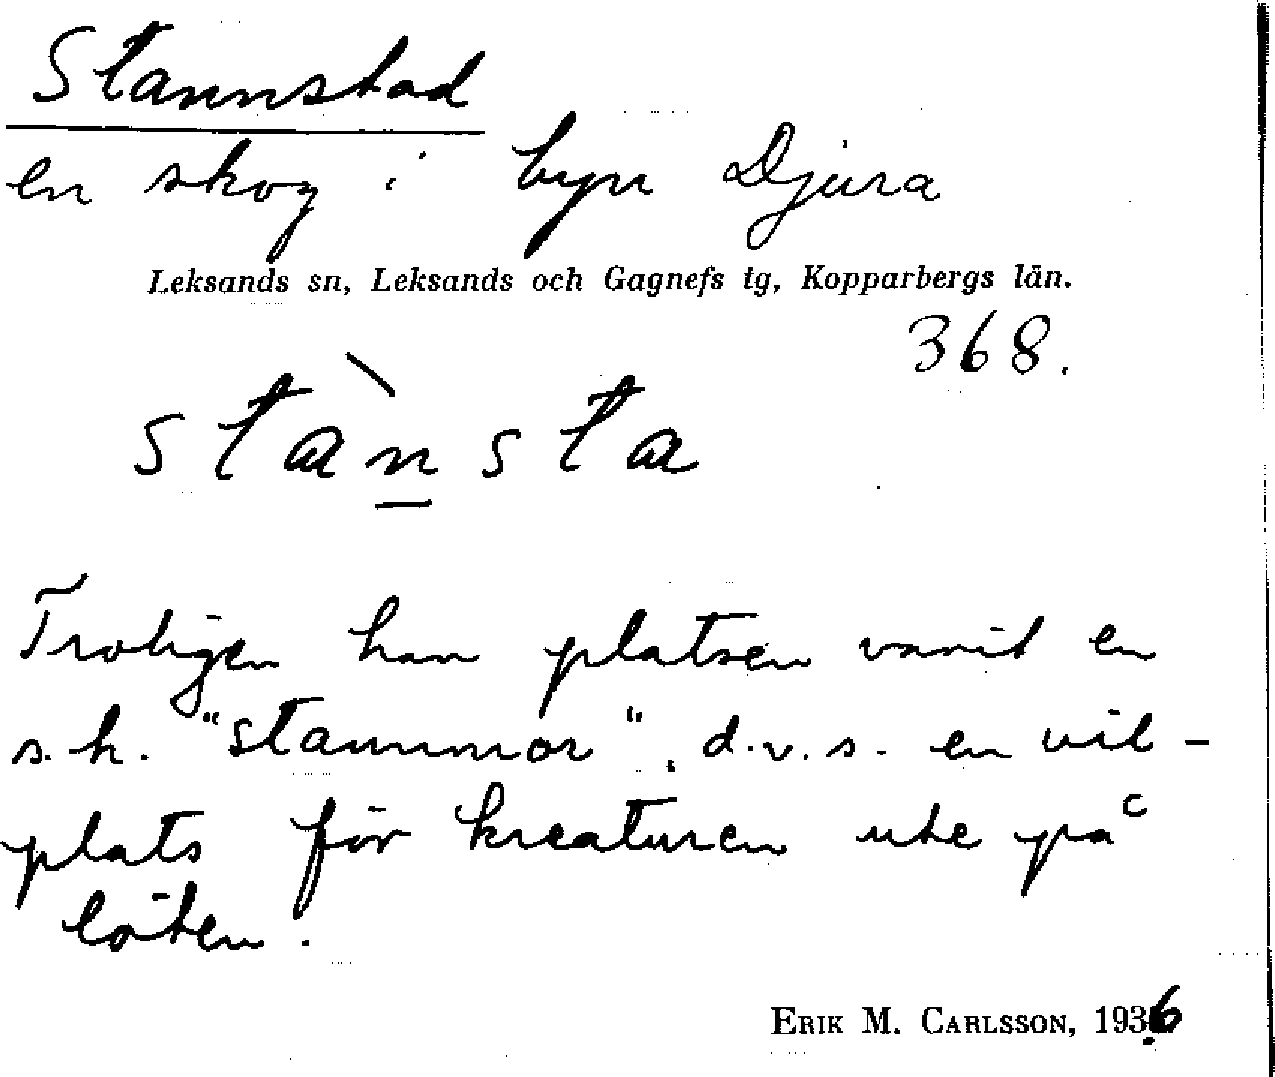 Stannstad
en skog i byn Djura
Leksands sn, Leksands och Gagnefs tg, Kopparbergs län.
368.
stànsta
Troligen han platsen varit en
s.k. "stammor", d.v.s. en vil-
plats för kreaturen ute på
löten.
ERIK M. CARLSSON, 1936